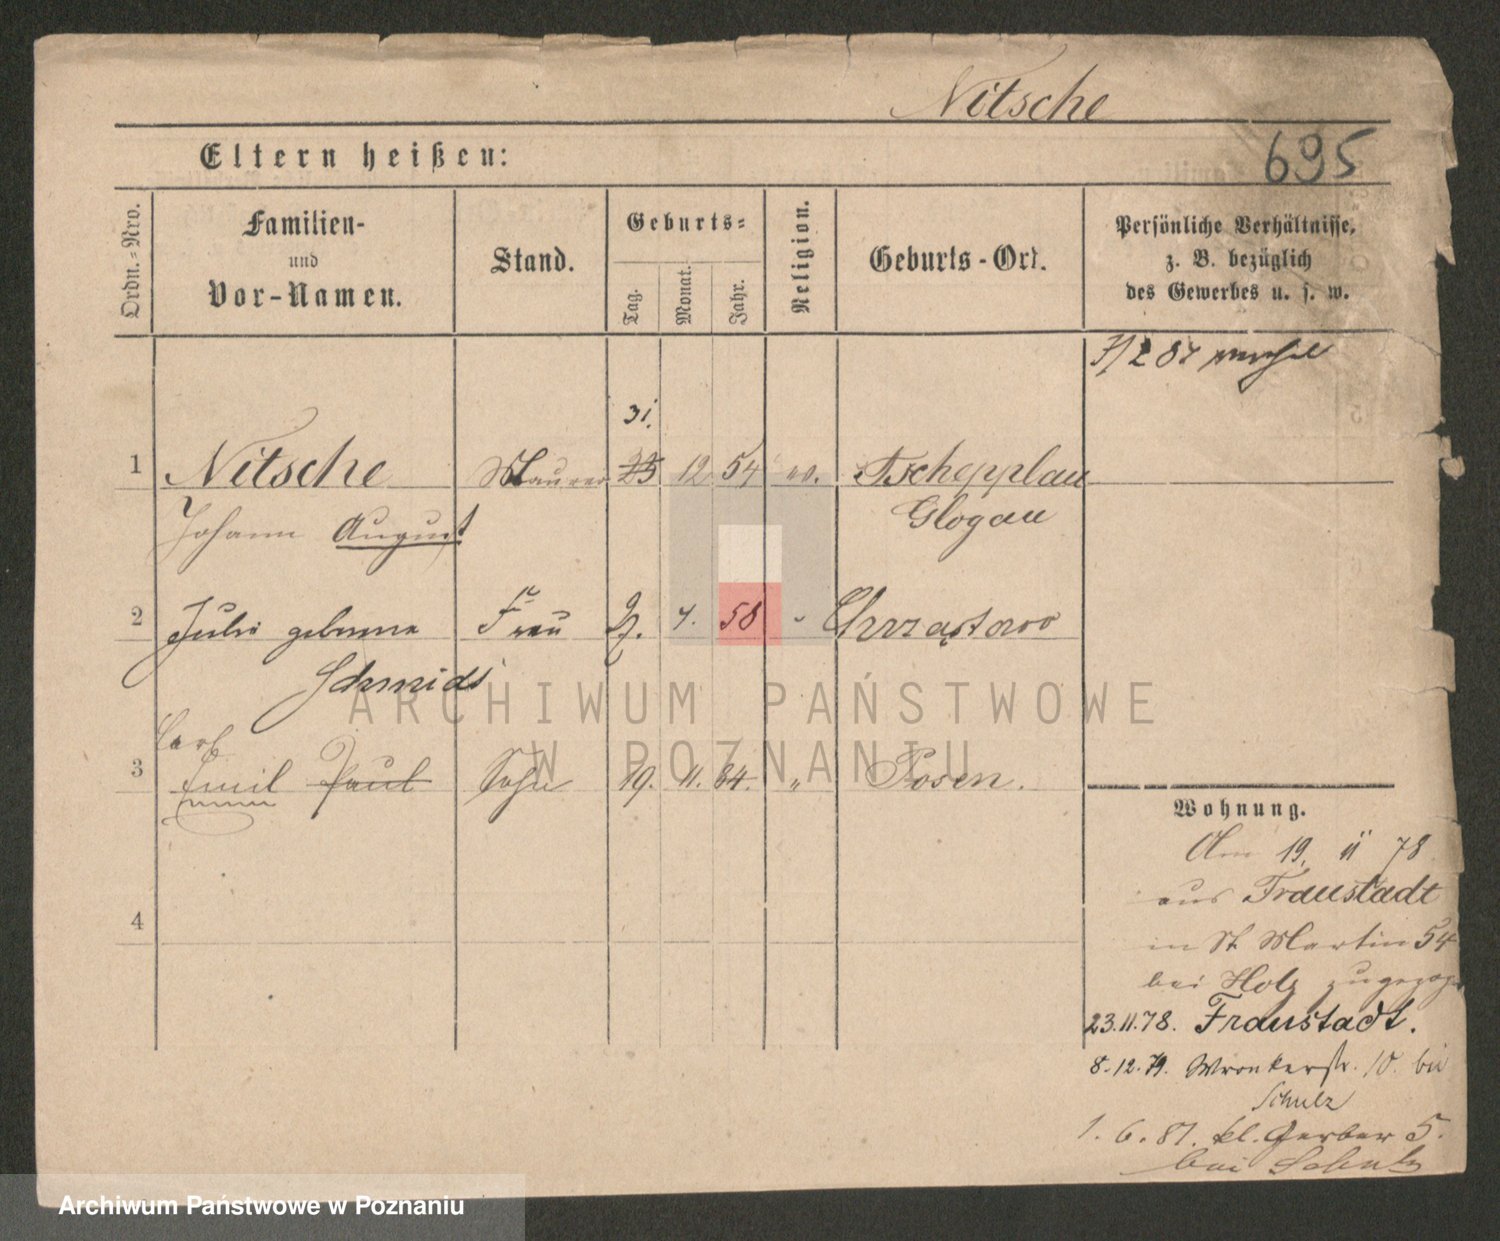 Nitsche
695
Eltern heißen:
Ordn.-Nro.
Familien-
und
Vor-Namen.
Stand.
Geburts-
Tag.
Monat.
Jahr.
Religion.
Geburts-Ort.
Persönliche Verhältnisse,
z. B. bezüglich
des Gewerbes u. s. w.
31.
1 Nitsche Maurer 23 12 54 ev. Tschepplau
Johann August Glogau
2 geborene Frau 58 Chrząstowo
Schmidt
Carl
3 Emil Paul Sohn 19. 11. 84. " Posen.
4
Wohnung.
Am 19. 11 78
aus Fraustadt
in St. Martin 54
bei Holz
23.11.78. Fraustadt.
8.12.79. Wronkerstr. 10. bei
Schulz
1. 6. 81. kl. Gerber 5.
bei Schulz
ARCHIWUM PAŃSTWOWE
W POZNANIU
Archiwum Państwowe w Poznaniu